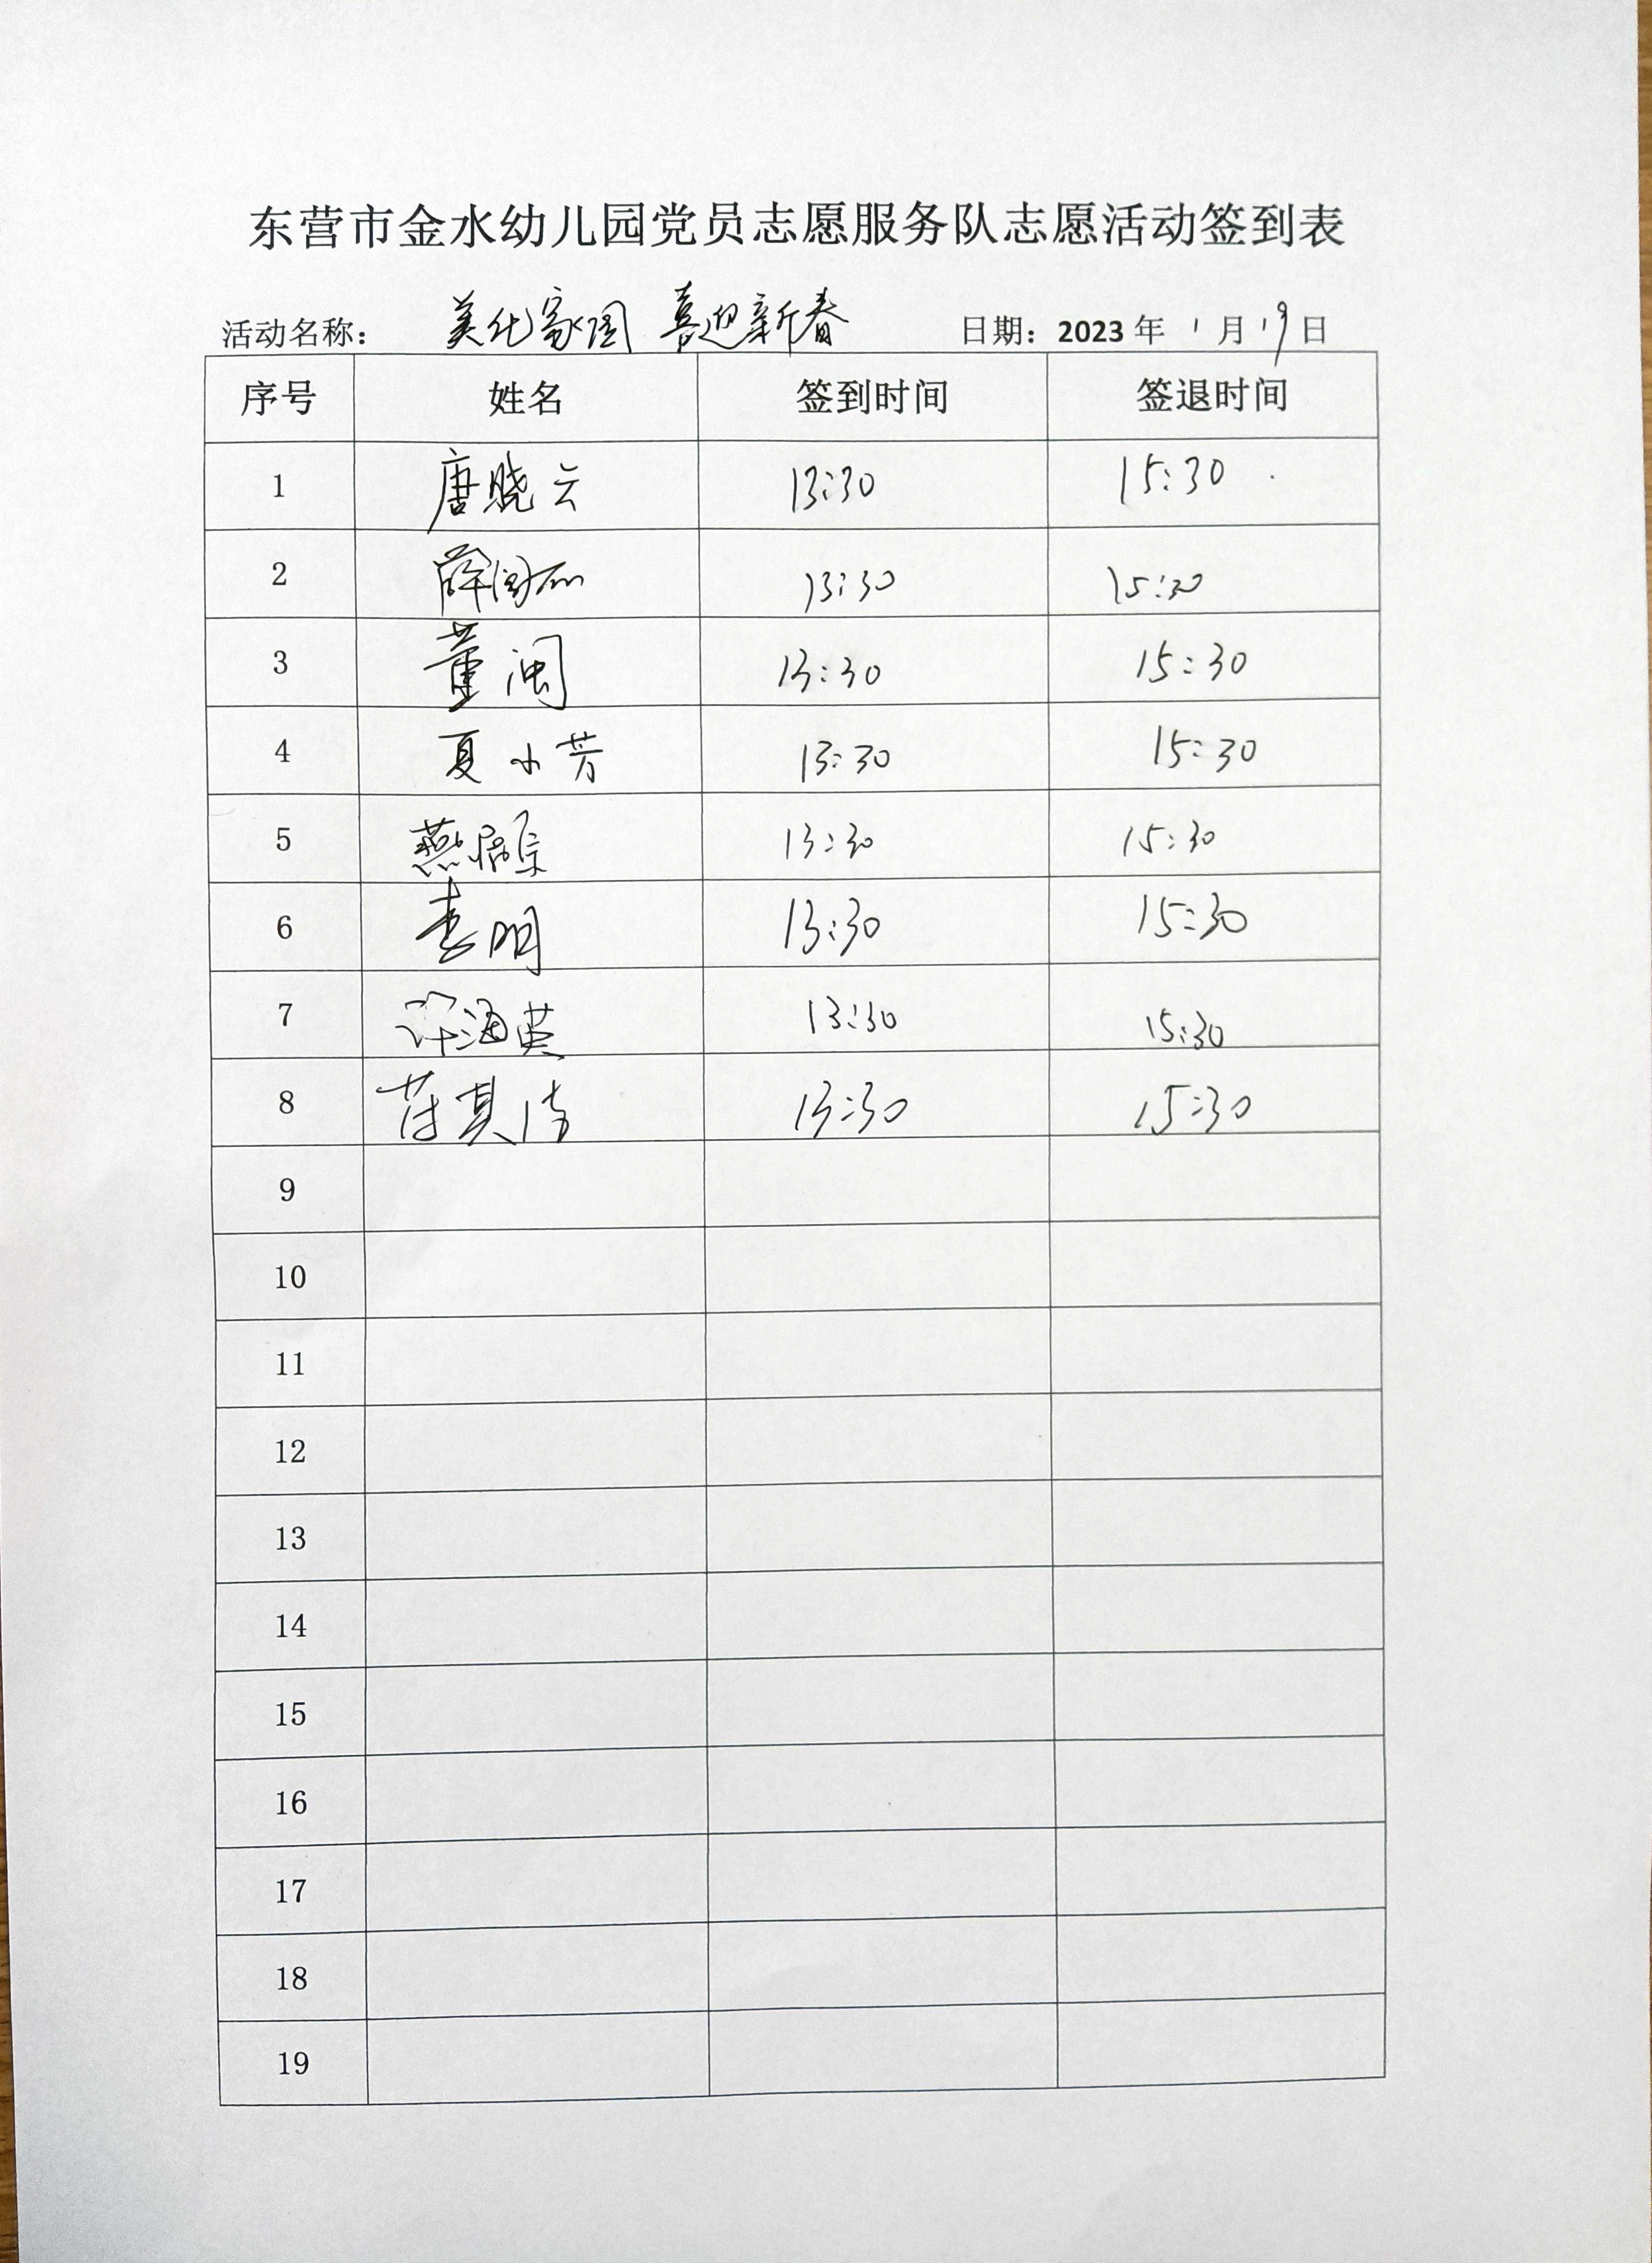 东营市金水幼儿园党员志愿服务队志愿活动签到表
活动名称： 美化家园 喜迎新春 日期：2023年 1月19日
序号 姓名 签到时间 签退时间
1 唐晓云 13:30 15:30
2 薛 13:30 15:30
3 董闽 13:30 15:30
4 夏小芳 13:30 15:30
5 燕 13:30 15:30
6 李明 13:30 15:30
7 许海英 13:30 15:30
8 其 13:30 15:30
9
10
11
12
13
14
15
16
17
18
19